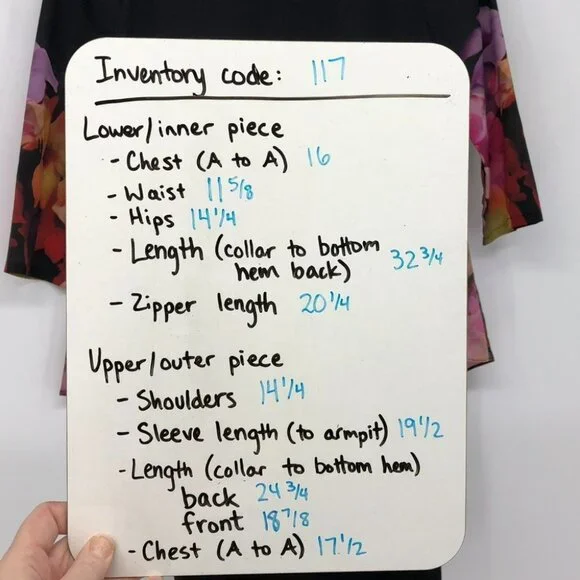 Inventory code: 117
Lower/inner piece
- Chest (A to A) 16
- Waist 11 5/8
- Hips 14 1/4
- Length (collar to bottom
hem back) 32 3/4
- Zipper length 20 1/4
Upper/outer piece
- Shoulders 14 1/4
- Sleeve length (to armpit) 19 1/2
- Length (collar to bottom hem)
back 24 3/4
front 18 7/8
- Chest (A to A) 17 1/2